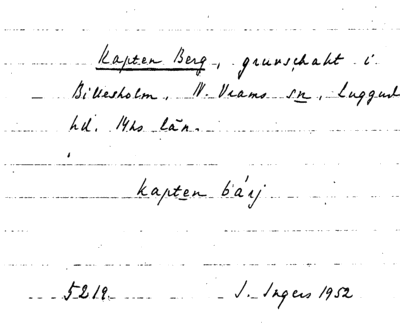 Kapten Berg, gruvschakt i
Billesholm, N. Vrams sn, Luggud
hd. Mhs län.
kapten bárj
5219. I. Ingers 1952